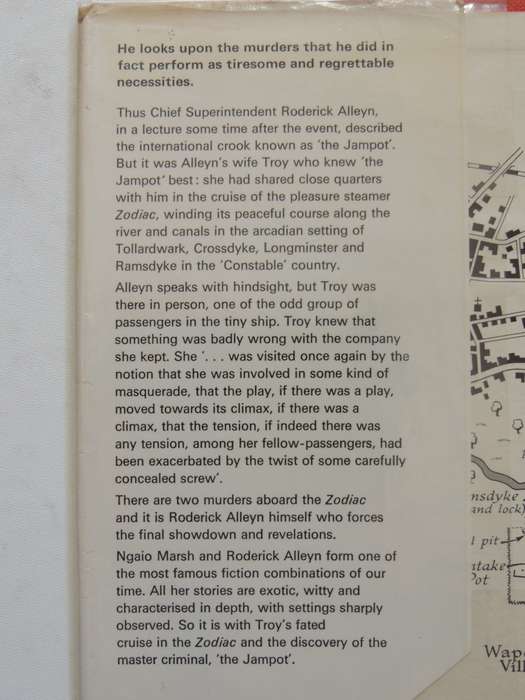 He looks upon the murders that he did in
fact perform as tiresome and regrettable
necessities.
Thus Chief Superintendent Roderick Alleyn,
in a lecture some time after the event, described
the international crook known as 'the Jampot'.
But it was Alleyn's wife Troy who knew 'the
Jampot' best: she had shared close quarters
with him in the cruise of the pleasure steamer
Zodiac, winding its peaceful course along the
river and canals in the arcadian setting of
Tollardwark, Crossdyke, Longminster and
Ramsdyke in the 'Constable' country.
Alleyn speaks with hindsight, but Troy was
there in person, one of the odd group of
passengers in the tiny ship. Troy knew that
something was badly wrong with the company
she kept. She '. . . was visited once again by the
notion that she was involved in some kind of
masquerade, that the play, if there was a play,
moved towards its climax, if there was a
climax, that the tension, if indeed there was
any tension, among her fellow-passengers, had
been exacerbated by the twist of some carefully
concealed screw'.
There are two murders aboard the Zodiac
and it is Roderick Alleyn himself who forces
the final showdown and revelations.
Ngaio Marsh and Roderick Alleyn form one of
the most famous fiction combinations of our
time. All her stories are exotic, witty and
characterised in depth, with settings sharply
observed. So it is with Troy's fated
cruise in the Zodiac and the discovery of the
master criminal, 'the Jampot'.
nsdyke
and lock)
pit
Pot
Wap
Vill